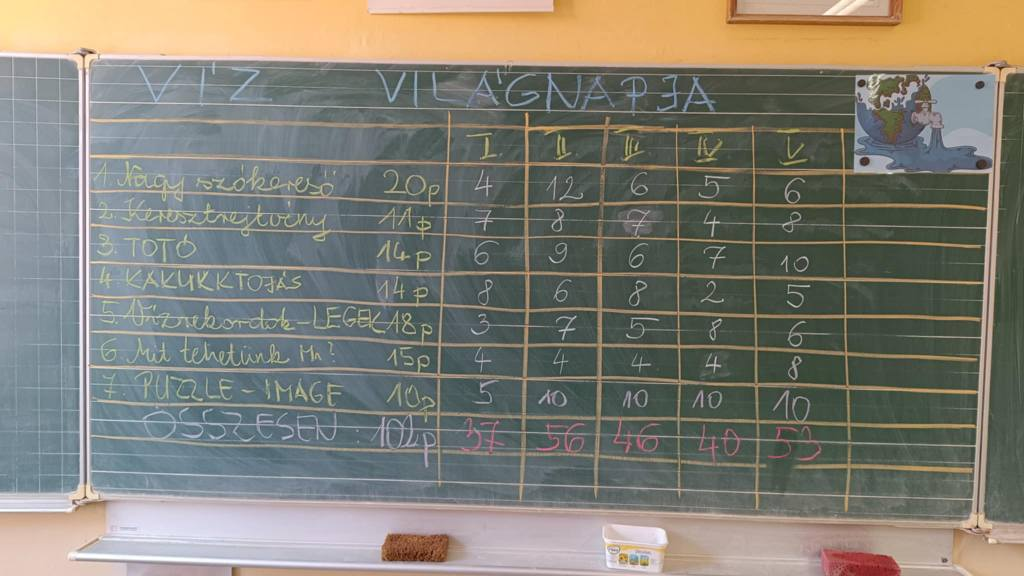 VÍZ VILÁGNAPJA
I II III IV V
1. Nagy szókereső 20p 4 12 6 5 6
2. Keresztrejtvény 11p 7 8 7 4 8
3. TOTÓ 14p 6 9 6 7 10
4. KAKUKKTOJÁS 14p 8 6 8 2 5
5. Vízrekordok-LEGEK 18p 3 7 5 8 6
6. Mit tehetünk Mi? 15p 4 4 4 4 8
7. PUZZLE-IMAGE 10p 5 10 10 10 10
ÖSSZESEN: 102p 37 56 46 40 53